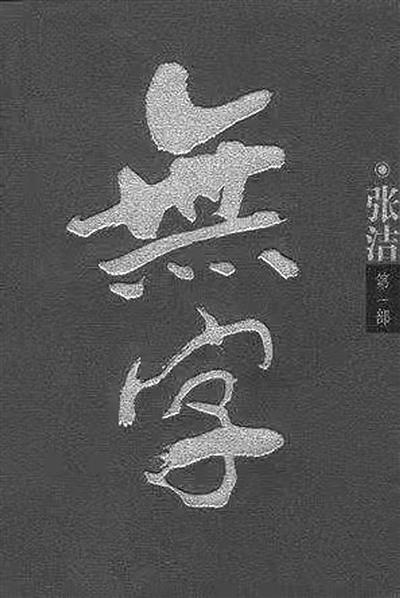 無字
张洁
第一部